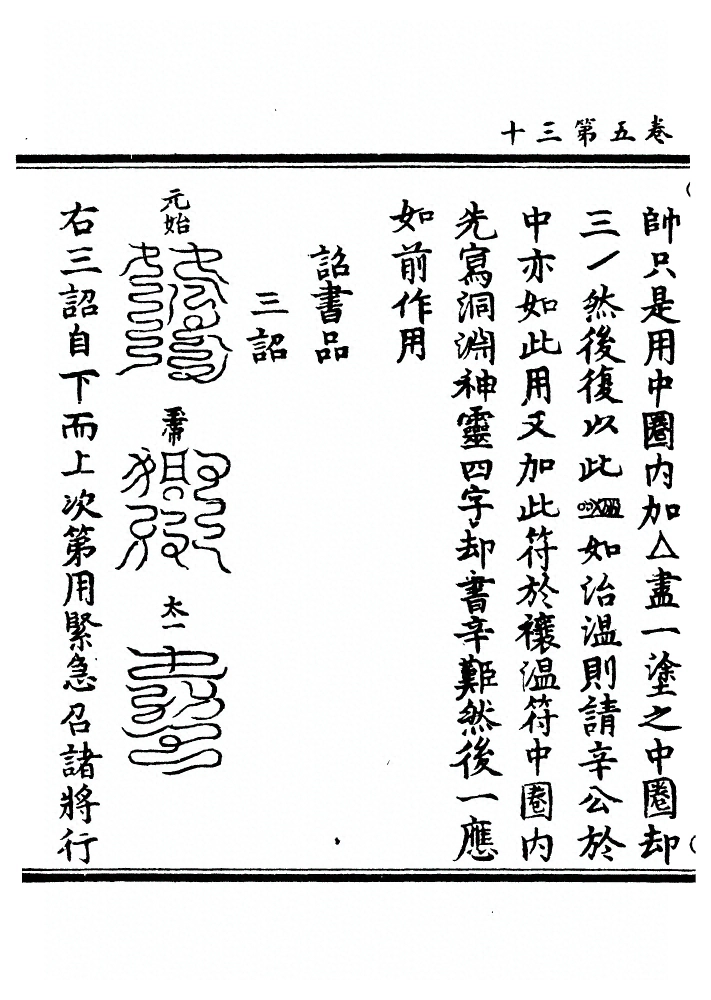 卷五第三十
帥只是用中圈内加△畫一塗之中圈却
三丿然後復以此如治温則請辛公於
中亦如此用又加此符於禳温符中圈内
先寫洞淵神靈四字却書辛難然後一應
如前作用
詔書品
三詔
元始
太一
右三詔自下而上次第用緊急召諸將行